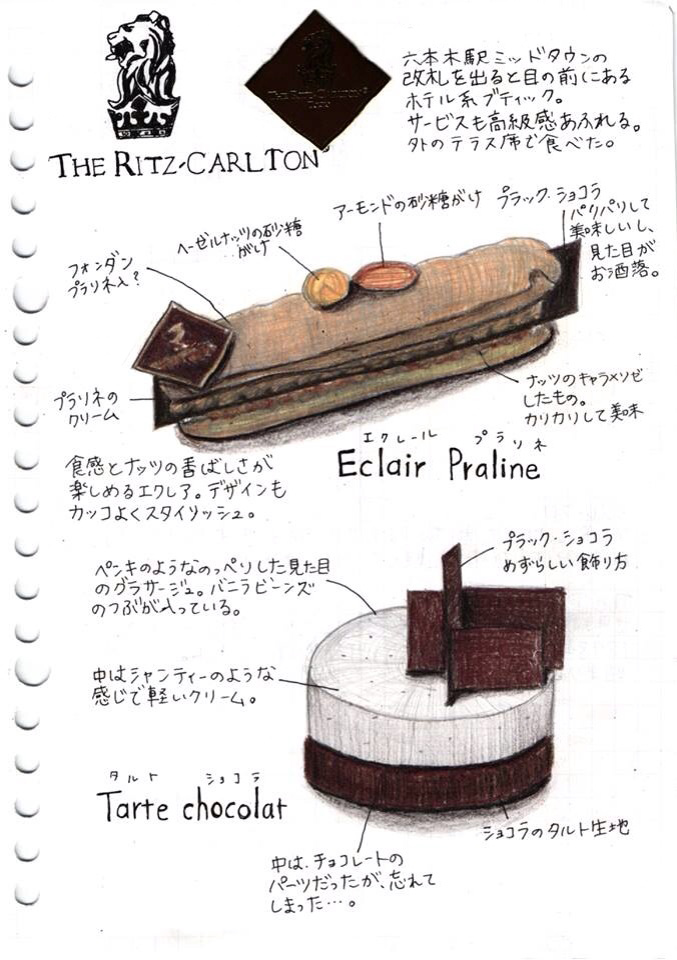 THE RITZ-CARLTON®
THE RITZ-CARLTON®
六本木駅ミッドタウンの
改札を出ると目の前にある
ホテル系ブティック。
サービスも高級感あふれる。
外のテラス席で食べた。
ヘーゼルナッツの砂糖
がけ
アーモンドの砂糖がけ
プラック・ショコラ
パリパリして
美味しいし、
見た目が
お洒落。
フォンダン
プラリネ入?
プラリネの
クリーム
ナッツのキャラメリゼ
したもの。
カリカリして美味
エクレール プラリネ
Eclair Praline
食感とナッツの香ばしさが
楽しめるエクレア。デザインも
カッコよくスタイリッシュ。
プラック・ショコラ
めずらしい飾り方
ペンキのようなのっぺりした見た目
のグラサージュ。バニラビーンズ
のつぶが入っている。
中はシャンティーのような
感じで軽いクリーム。
タルト ショコラ
Tarte chocolat
ショコラのタルト生地
中は、チョコレートの
パーツだったが、忘れて
しまった…。